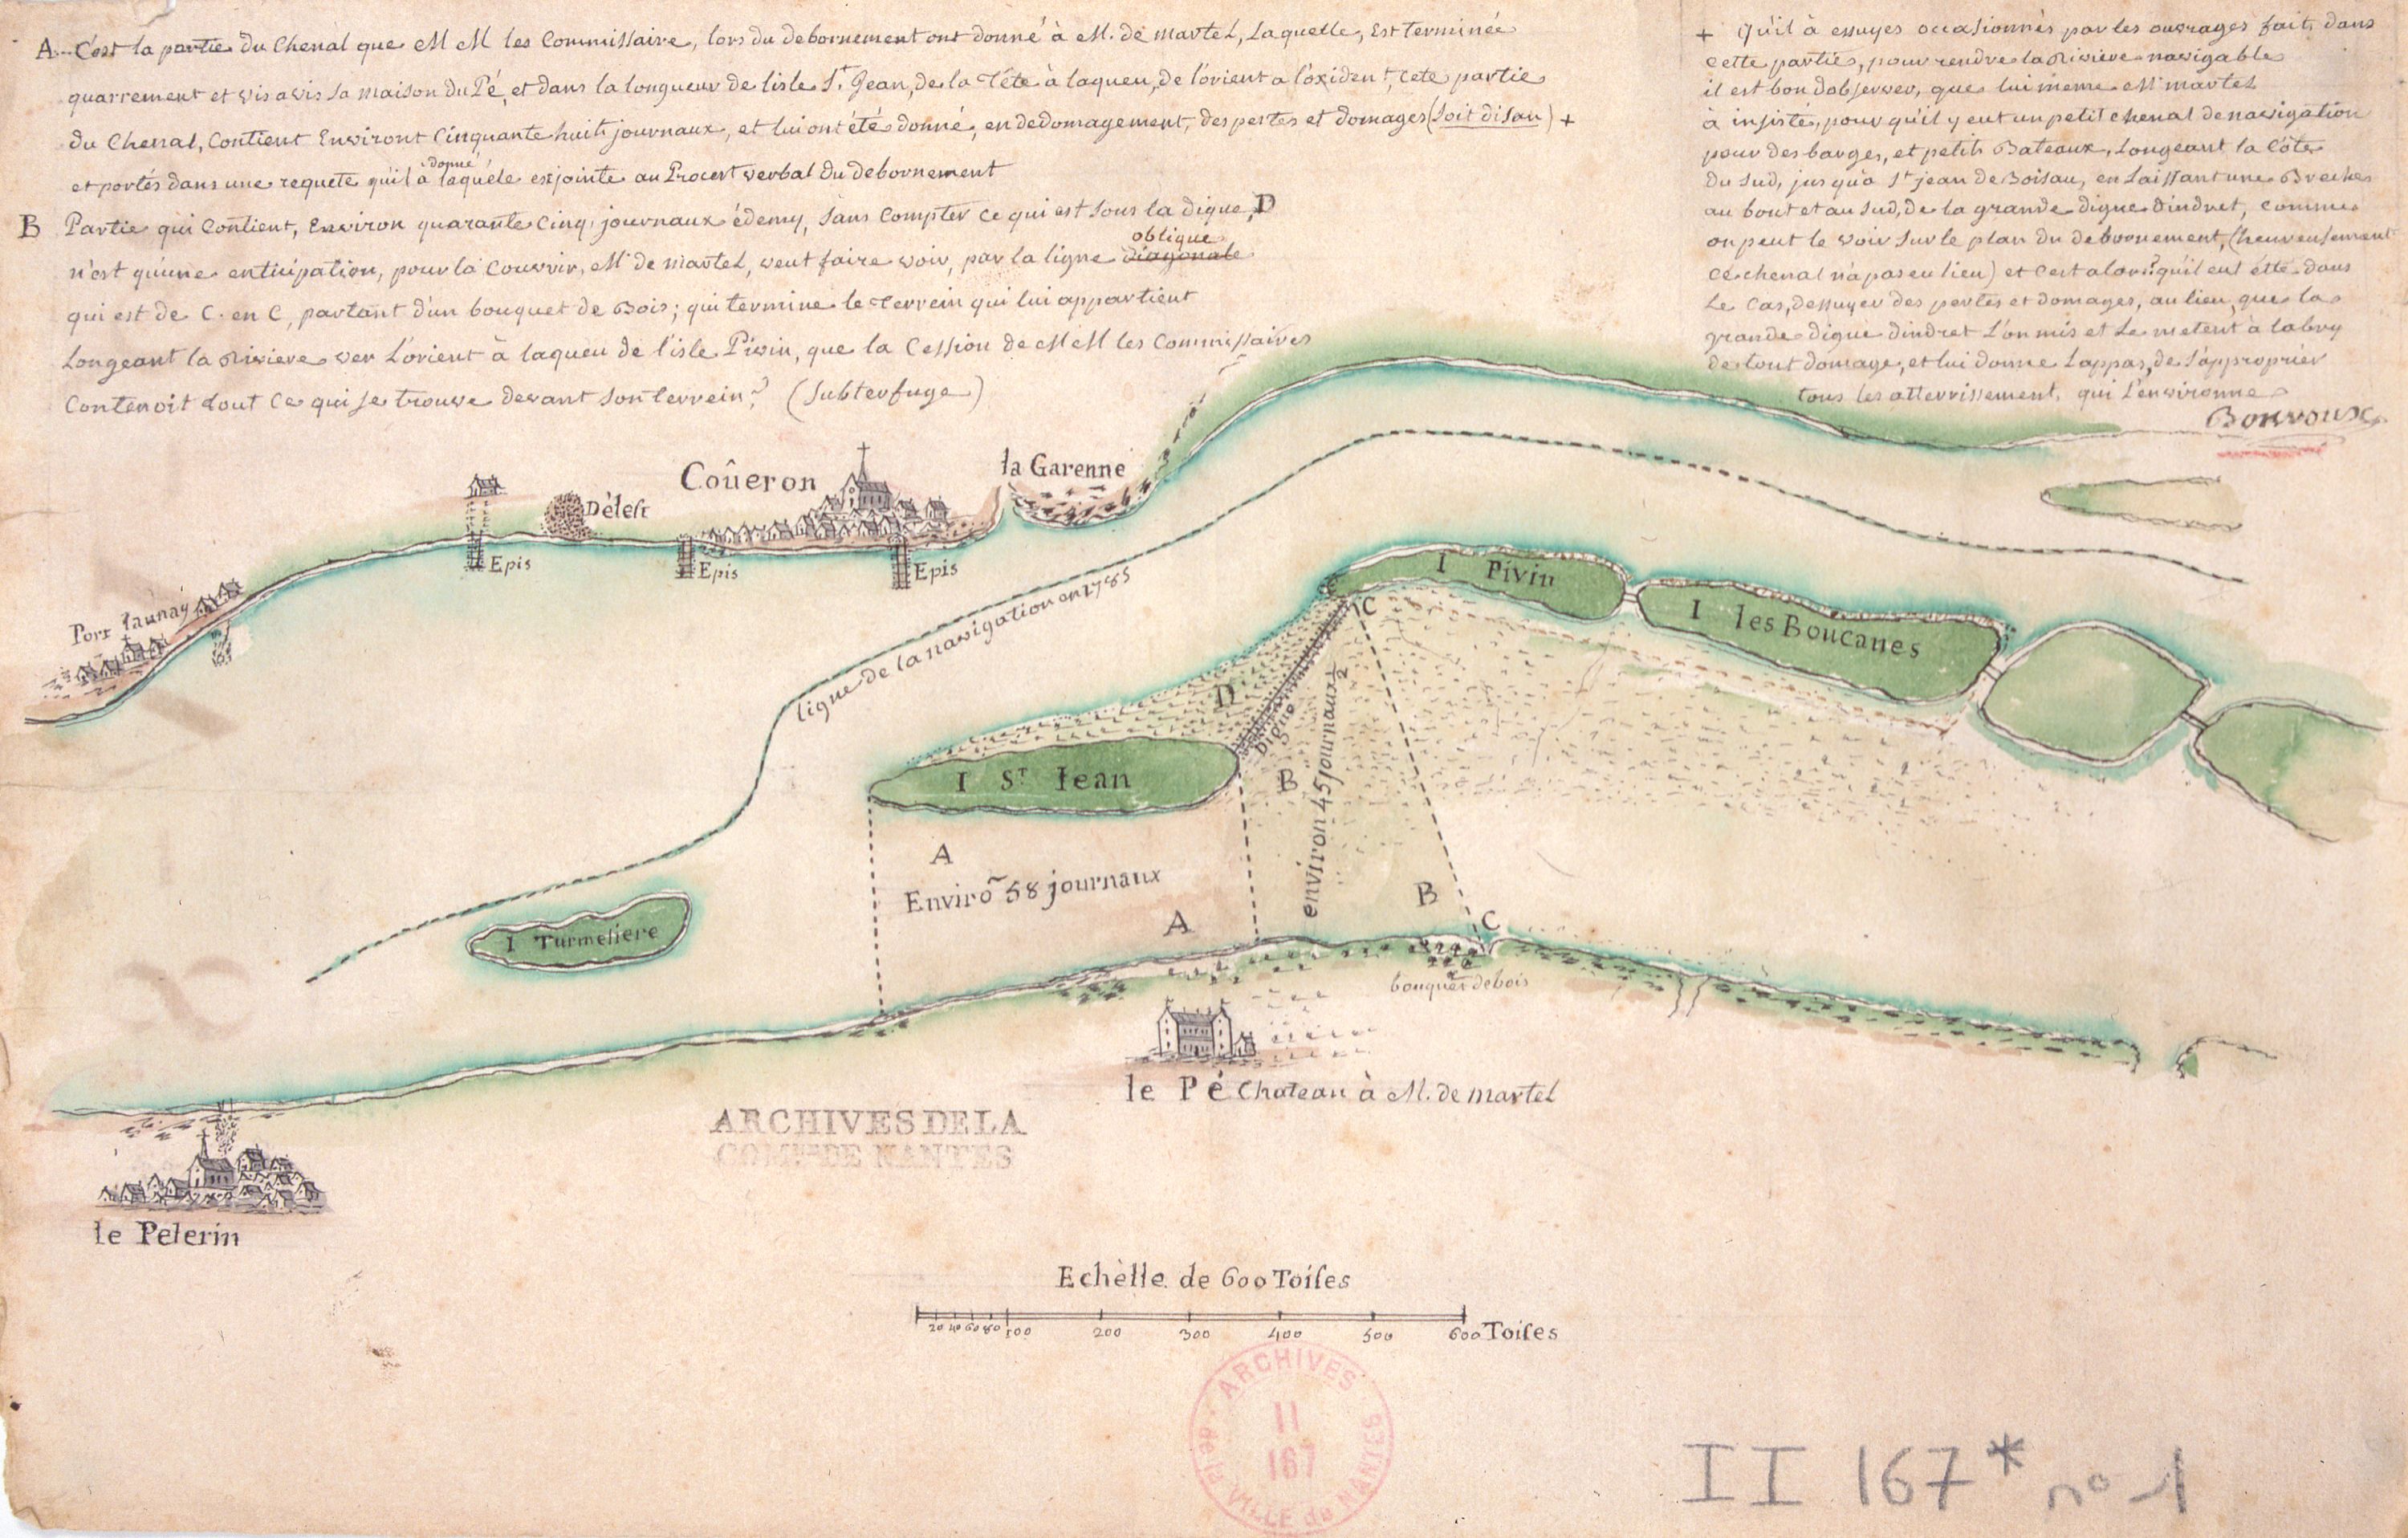 A... C'est la partie du Chenal que M M les Commissaire, lors du debornement ont donné à M. de martel, Laquelle, Est terminée
quarrement et vis a vis sa maison du Pé, et dans la longueur de lisle St. Jean, de la Tête à laqueu, de l'orient a l'oxident, cete partie
du Chenal, Contient Environt Cinquante huit journaux, et lui ont été donné, en dedomagement, des pertes et domages (Soit disan) +
et portés dans une requete qu'il a donné laquéle est jointe au Procert verbal du debornement
B Partie qui Contient, Environ quarante Cinq journaux é demy, Sans Compter ce qui est sous la digue, D
n'est qu'une enticipation, pour la Couvrir, Mr de martel, veut faire voir, par la ligne oblique diagonale
qui est de C. en C, partant d'un bouquet de Bois; qui termine le terrein qui lui appartient
Longeant la Riviere ver L'orient à laqueu de l'isle Pivin, que la Cession de M M les Commissaires
Contenoit tout ce qui se trouve devant son terrein? (Subterfuge)
+ Qu'il à essuyes occasionnés par les ouvrages fait dans
cette parties, pour rendre la Riviere navigable
il est bon dobserver, que lui meme Mr martel
à insisté, pour qu'il y eut un petit chenal de navigation
pour des barges, et petits Bateaux, Longeant la Côte
du Sud, jusqu'a St jean de Boisau, en Laissant une Breche
au bout et au Sud, de la grande digue dindret, comme
on peut le voir sur le plan du debornement, (heureusement
ce chenal n'a pas eu lieu) et c'est alors? qu'il eut étté dans
Le Cas, dessuyer des pertes et domages, au lieu, que la
grande digue dindret L'on mis et Le metent à labry
de tout domage, et lui donne Lappas, de S'approprier
tous les atterrissement, qui L'environne
Bonvoux
Coûeron
la Garenne
Délest
Epis
Epis
Epis
Port Launay
ligne de la navigation en 1785
I Pivin
I les Boucanes
C
D
Digue
B
environ 45 journaux 1/2
I St Jean
A
Enviro~ 58 journaux
A
B
C
I Turmeliere
bouquet de bois
le Pé Chateau à M. de martel
ARCHIVES DE LA
COMne DE NANTES
le Pelerin
Echèlle de 600 Toises
20 40 60 80 100 200 300 400 500 600 Toises
ARCHIVES
II
167
de la VILLE de NANTES
II 167* no 1